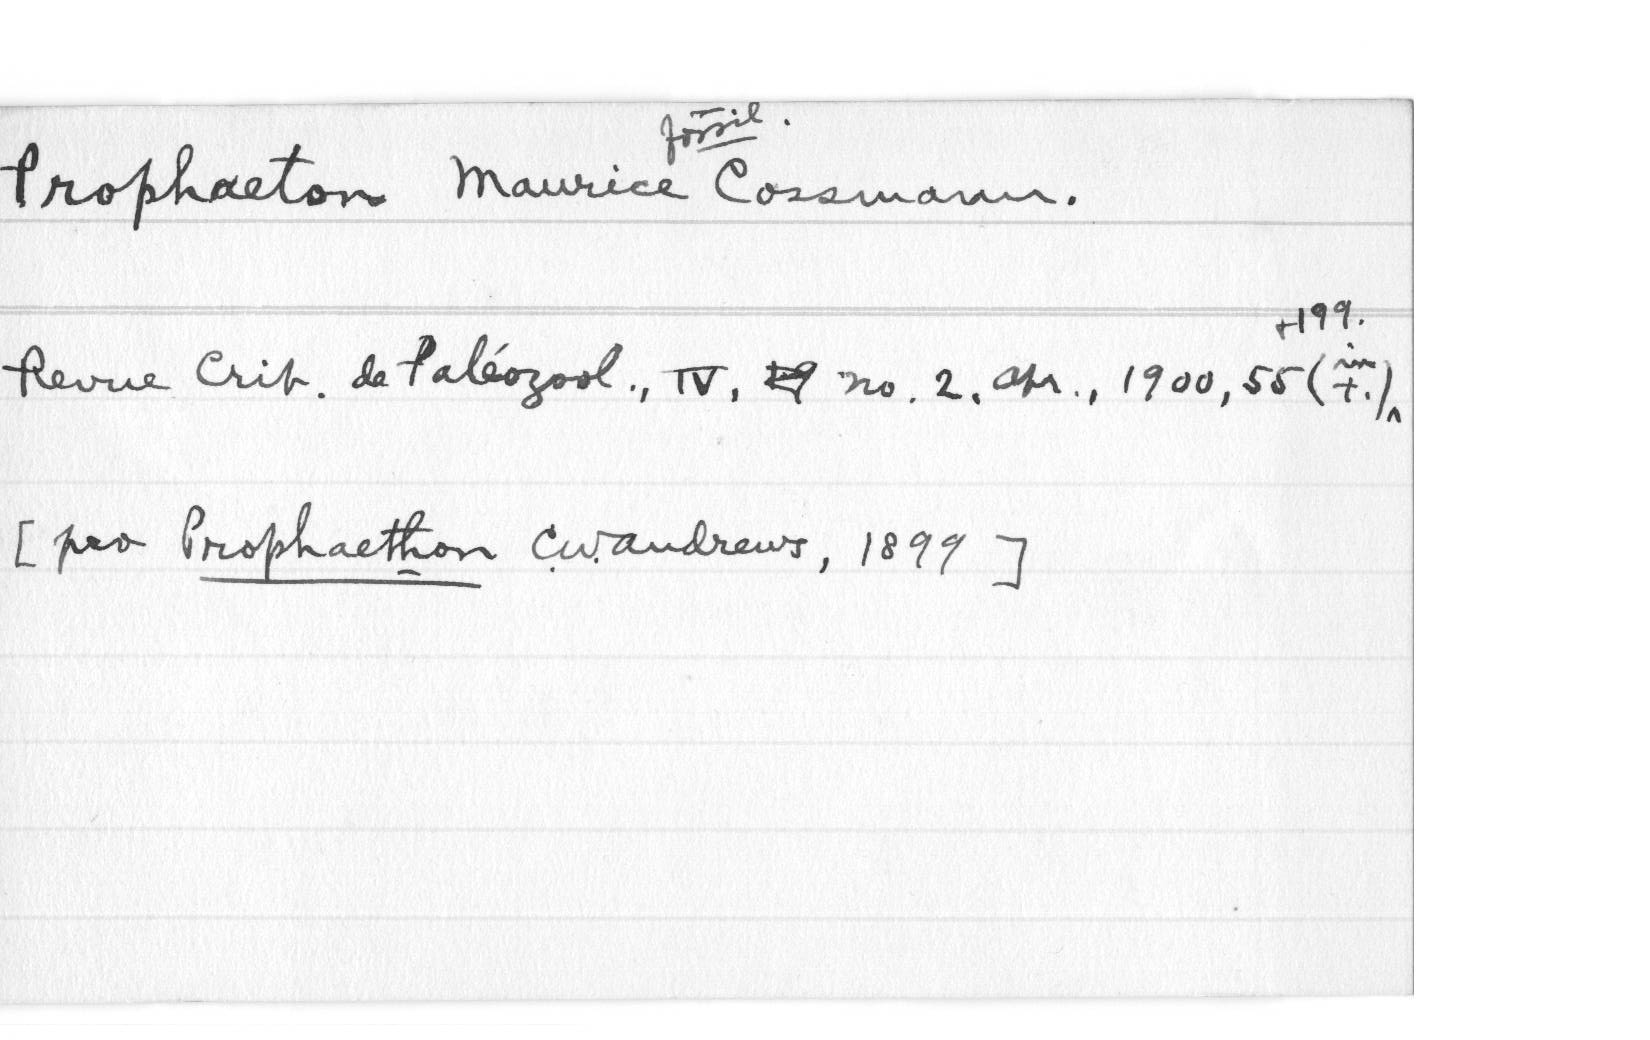 fossil.
Prophaeton Maurice Cossmann.
+199.
Revue Crit. de Paléozool., IV, no. 2, Apr., 1900, 55 (in t.)
[pro Prophaethon C.W. Andrews, 1899]